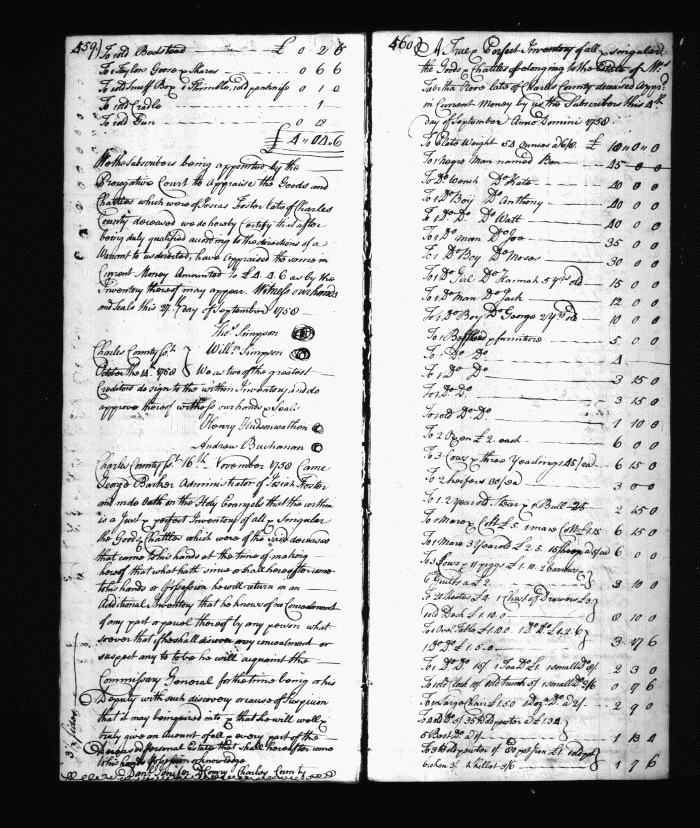 459)
To 1 old Bedstead £ 0 2 6
To 1 Taylors Goose & Shares 0 6 6
To 1 old Snuff Box 1 Thimble, 1 old penknife 0 1 0
To 1 old Cradle 1
To 1 old Gun 0 12
£ 4 " 04 " 6
We the Subscribers being appointed by the
Prerogative Court to Appraise the Goods and
Chattles which were of Josias Foster late of Charles
County deceased we do hereby Certify that after
being duly qualified according to the directions of a
Warrant to us directed, have Appraised the same in
Current Money Amounted to £ 4. 4. 6 as by the
Inventory thereof may appear. Witness our hands
and Seals this 27th day of September 1758
Thos. Simpson
Willm. Simpson
Charles County Sct.
October the 14th. 1758 We as two of the greatest
Creditors do sign to the within Inventory, and do
approve thereof witness our hands & Seals
Henry Hudson Wathen
Andrew Buchanan
Charles County Sct. 16th. November 1758 Came
George Barker Administrator of Josiah Foster
and made Oath on the Holy Evangels that the within
is a Just & perfect Inventory of all & Singular
the Goods & Chattles which were of the said deceased
that came to his hands at the time of making
hereof that what hath since or shall hereafter come
to his hands or possession he will return in an
Additional Inventory that he knows of no Concealment
of any part or parcel thereof by any person what
soever that if he shall discover any concealment or
suspect any to be he will acquaint the
Commissary General for the time being or his
Deputy with such discovery or cause of Suspicion
that it may be inquired into & that he will well &
truly give an Account of all & every part of the
Deceased personal Estate that shall hereafter come
to his hands possession or knowledge
Danl. Jenifer Charles County
460)
A True & Perfect Inventory of all & singular
the Goods & Chattles of & belonging to the Estate of Mrs
Tabitha Hove late of Charles County deceased Apprs
in Current Money by us the Subscribers this 4th
day of September Anno Domini 1758
To Plate Weight 54 Ounces a 6/8 £ 18 " 0 " 0
To 1 Negro Man named Ben 45 0
To 1 Do. Wench Do. Kate 40 0 0
To 1 Do. Boy Do. Anthony 40 0 0
To 1 Do. Do. Do. Watt 40 0 0
To 1 Do. man Do. Joe 35 0 0
To 1 Do. Boy Do. Moses 30 0 0
To 1 Do. Girl Do. Hannah 5 yrs old 15 0 0
To 1 Do. Man Do. Jack 12 0 0
To 1 Do. Boy Do. George 2 yrs old 10 0 0
To 1 Bedstead & furniture 5 0 0
To 1 Do. Do. 4
To 1 Do. Do. 3 15 0
To 1 Do. Do. 3 15 0
To 1 old Do. Do. 1 10 0
To 2 Oxen £ 2. each 6 0 0
To 3 Cows & three Yearlings 45/ ea 6 15 0
To 2 heifers 30/ ea 3 0 0
To 1. 2 year old Steer & 1 Bull 25 2 15 0
To 1 Mare & Colt £ 5 1 mare Colt £ 1.15 6 15 0
To 1 Mare 3 Year old £ 2.5. 15 sheep 6 0 0
To 3 Sows 11 piggs £ 1. 10. 2 barrows
6 Guilts a £ 2. 3 10 0
To £4. 1 Chest of Drawers £ 3
1 old Desk £ 1. 10. 0 8 10 0
To 1 Oval Table £ 1. 0. 0 1 Do. Do. £ 1. 2. 6
1 Do. Do. £ 1. 5. 0 3 7 6
To 1 Do. Do. 10/ 1 Tea Do. £ 1 1 small Do. 3/ 2 3 0
To 1 old Clock 1 old Trunk 5/ 1 small Do. 2/6 0 7 6
To 1 Large 1. 5. 0 1 Doz. Do. a 2/ 2 9 0
To 41 lb Do. of 35 lb old pewter a £ 1 3 4
5 Best Do. a 1/ 1 13 4
To old pewter
broken 3/. 1 Skillet 3/6 1 7 6